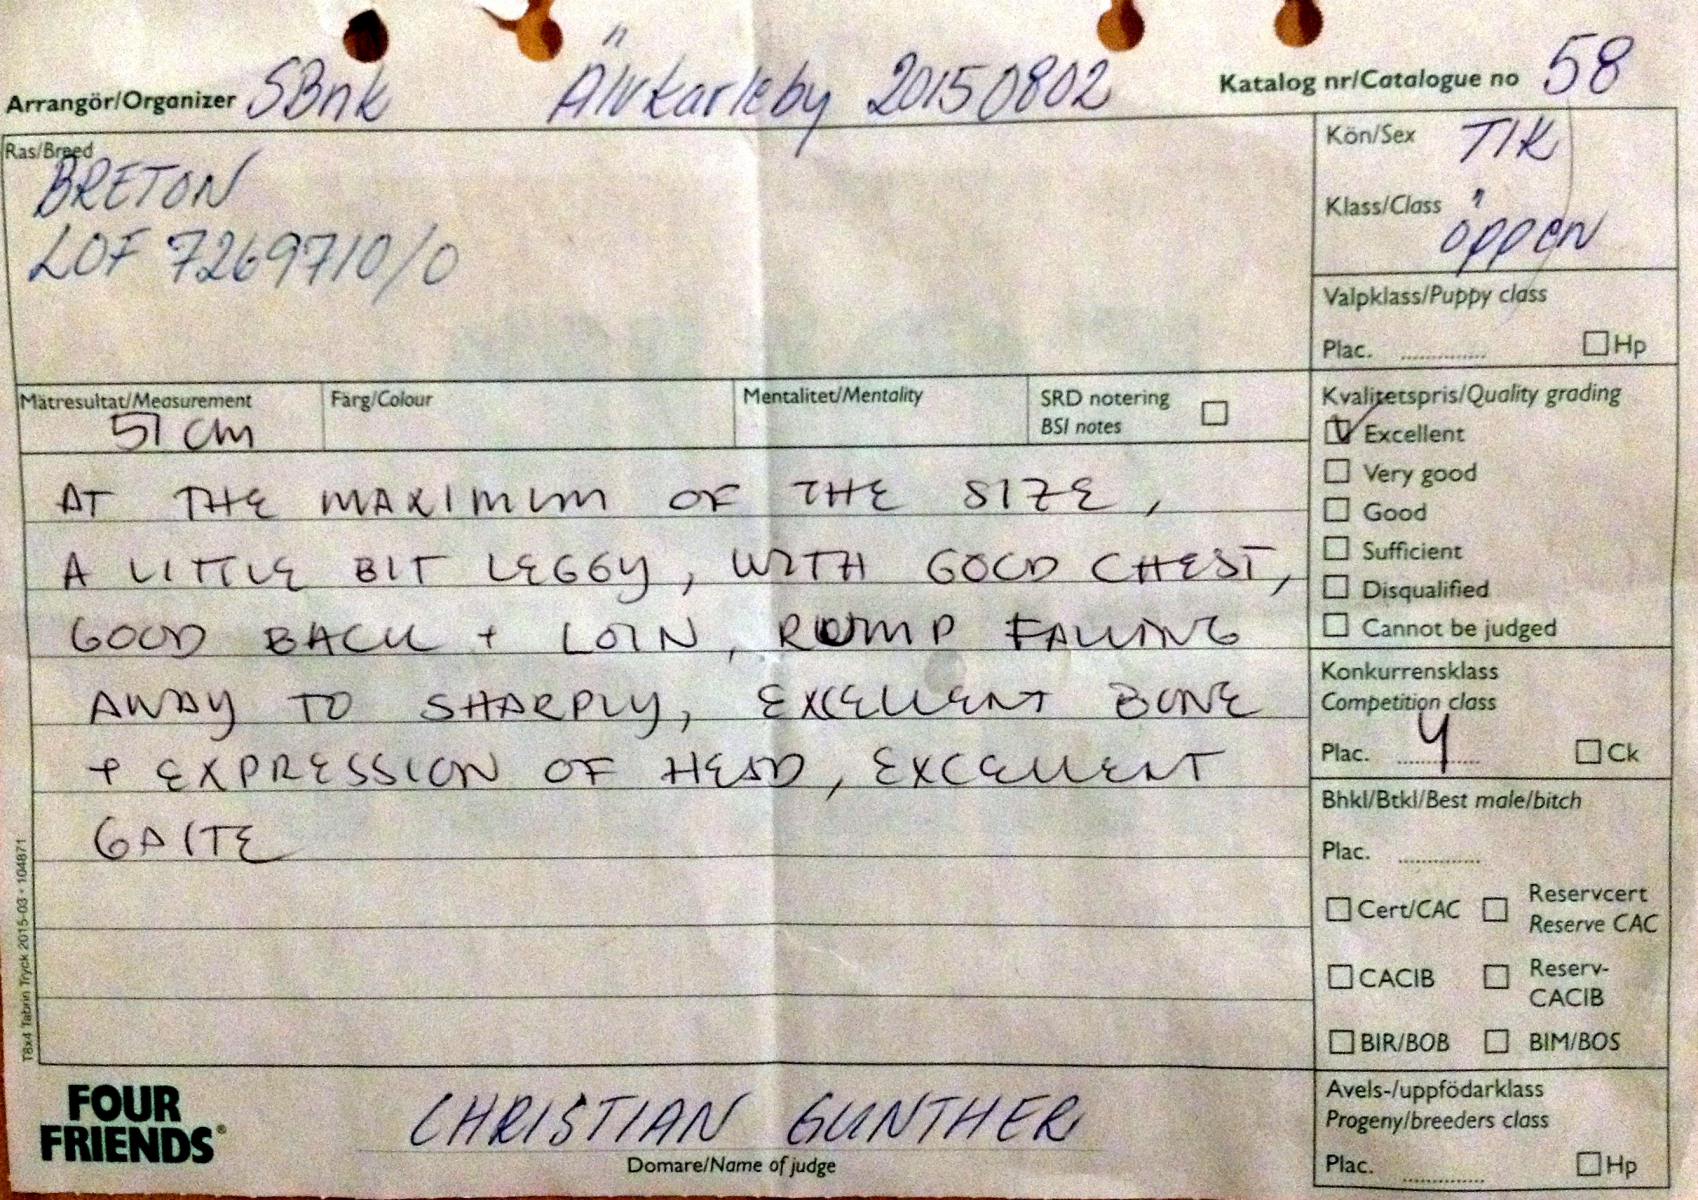 Arrangör/Organizer SBnk Älvkarleby 20150802 Katalog nr/Catalogue no 58
Ras/Breed
BRETON
LOF 7269710/0
Kön/Sex TIK
Klass/Class öppen
Valpklass/Puppy class
Plac. .............. Hp
Mätresultat/Measurement
51 cm
Färg/Colour
Mentalitet/Mentality
SRD notering
BSI notes
Kvalitetspris/Quality grading
Excellent
Very good
Good
Sufficient
Disqualified
Cannot be judged
AT THE MAXIMUM OF THE SIZE,
A LITTLE BIT LEGGY, WITH GOOD CHEST,
GOOD BACK + LOIN, RUMP FALLING
AWAY TO SHARPLY, EXCELLENT BONE
+ EXPRESSION OF HEAD, EXCELLENT
GAITE
Konkurrensklass
Competition class
Plac. 4 Ck
Bhkl/Btkl/Best male/bitch
Plac. ..............
Cert/CAC
Reservcert
Reserve CAC
CACIB
Reserv-
CACIB
BIR/BOB
BIM/BOS
Avels-/uppfödarklass
Progeny/breeders class
Plac. .............. Hp
T8x4 Tabnn Tryck 2015-03 • 104871
FOUR
FRIENDS®
CHRISTIAN GUNTHER
Domare/Name of judge